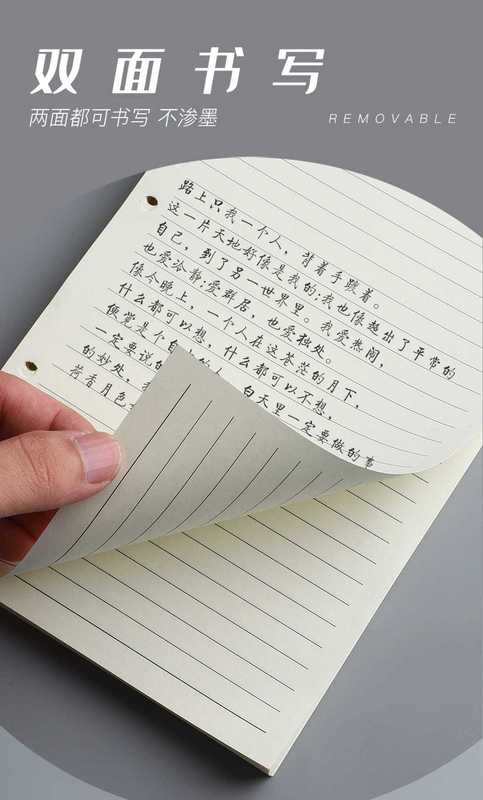 双面书写
两面都可书写 不渗墨
REMOVABLE
路上只我一个人，背着手踱着。
这一片天地好像是我的；我也像超出了平常的
自己，到了另一世界里。我爱热闹，
也爱冷静；爱群居，也爱独处。
像今晚上，一个人在这苍茫的月下，
什么都可以想，什么都可以不想，
便觉是个自 白天里一定要做的事
一定要说的
的妙处，我
荷香月色